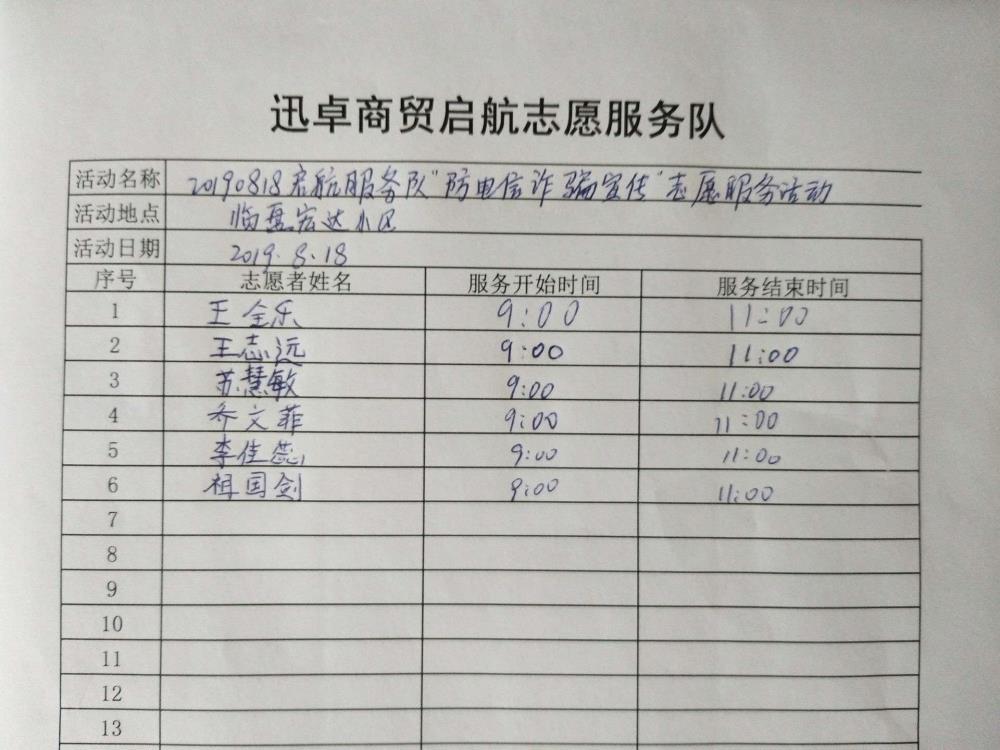 迅卓商贸启航志愿服务队
活动名称 20190818启航服务队"防电信诈骗宣传"志愿服务活动
活动地点 临盘宏达小区
活动日期 2019.8.18
序号 志愿者姓名 服务开始时间 服务结束时间
1 王全乐 9:00 11:00
2 王志远 9:00 11:00
3 苏慧敏 9:00 11:00
4 乔文菲 9:00 11:00
5 李佳蕊 9:00 11:00
6 祖国剑 9:00 11:00
7
8
9
10
11
12
13